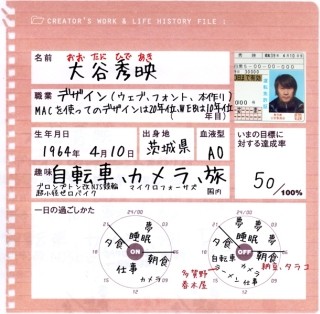 CREATOR'S WORK & LIFE HISTORY FILE :
おお たに ひで あき
名前 大谷秀映
職業 デザイン(ウェブ、フォント、本作り)
MACを使ってのデザインは20年位、WEBは10年位
年目)
生年月日 出身地 血液型 いまの目標に
対する達成率
1964年 4月10日 茨城県 AO
趣味 自転車、カメラ、旅
ブロンプトン改NJS競輪 マイクロフォーサーズ 国内
超小径ゼロバイク
50/100%
一日の過ごしかた
24/00 24/00
夢 睡眠 夕食 朝食 仕事 カメラ ON
夢 夢 睡眠 夕食 朝食 自転車 カメラ ラーメン 仕事 OFF
納豆、タラコ
多賀野
春木屋